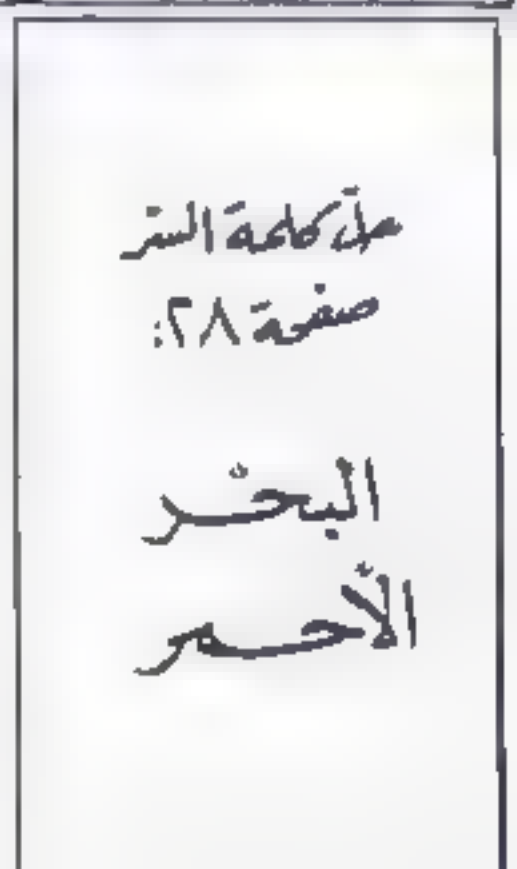 حلّ كلمة السّر
صفحة ٢٨:
البحْر
الأحمر